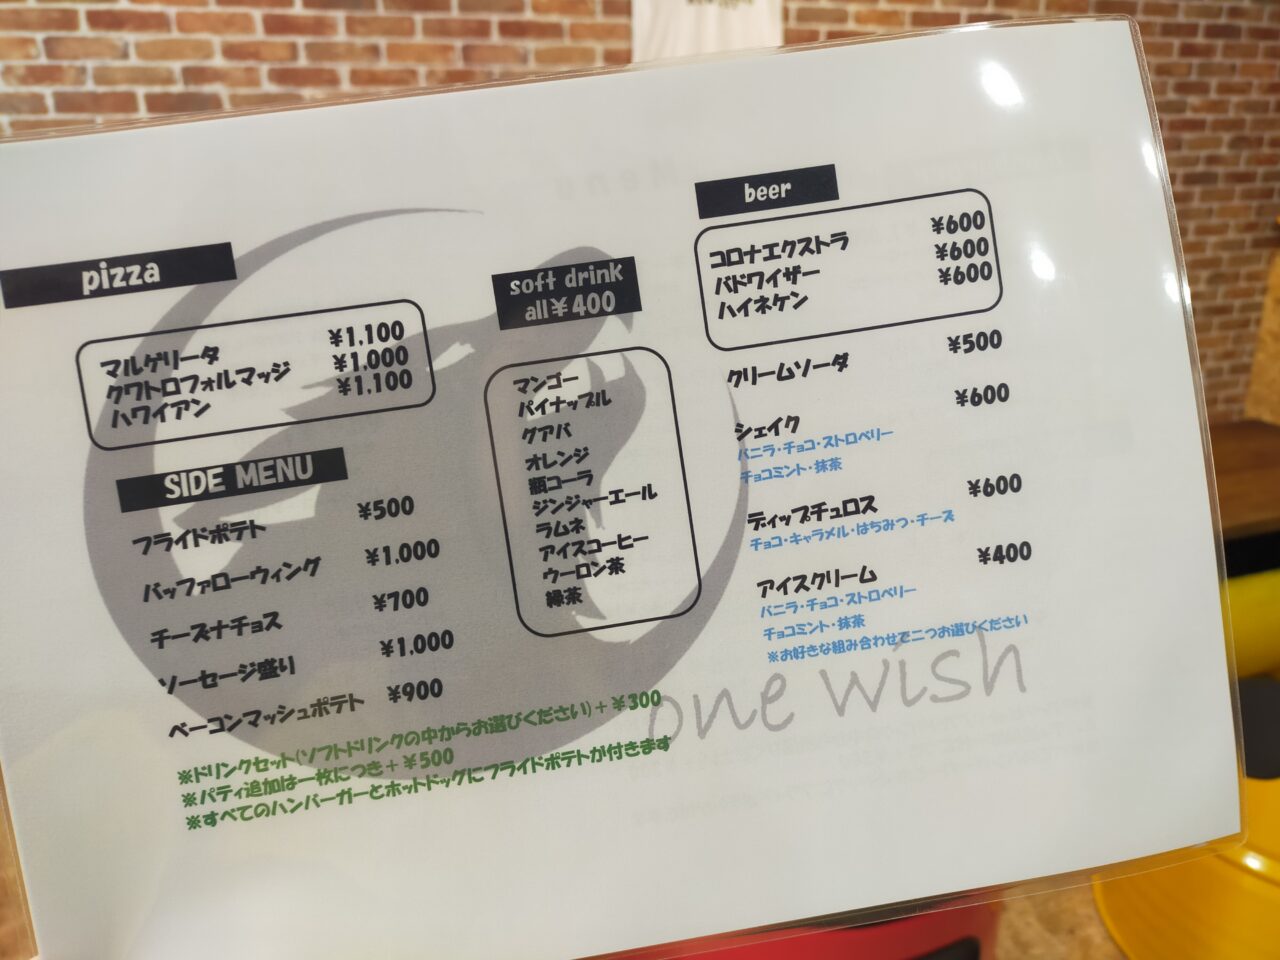 pizza
マルゲリータ ¥1,100
クワトロフォルマッジ ¥1,000
ハワイアン ¥1,100
SIDE MENU
フライドポテト ¥500
バッファローウィング ¥1,000
チーズナチョス ¥700
ソーセージ盛り ¥1,000
ベーコンマッシュポテト ¥900
※ドリンクセット(ソフトドリンクの中からお選びください)+¥300
※パティ追加は一枚につき+¥500
※すべてのハンバーガーとホットドッグにフライドポテトが付きます
soft drink
all¥400
マンゴー
パイナップル
グアバ
オレンジ
瓶コーラ
ジンジャーエール
ラムネ
アイスコーヒー
ウーロン茶
緑茶
beer
コロナエクストラ ¥600
バドワイザー ¥600
ハイネケン ¥600
クリームソーダ ¥500
シェイク ¥600
バニラ・チョコ・ストロベリー
チョコミント・抹茶
ディップチュロス ¥600
チョコ・キャラメル・はちみつ・チーズ
アイスクリーム ¥400
バニラ・チョコ・ストロベリー
チョコミント・抹茶
※お好きな組み合わせで二つお選びください
one wish